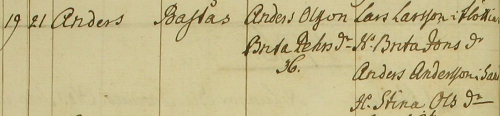 19 21 Anders Bastås Anders Olsson Lars Larsson i Flottie
Brita Pehrs dr H. Brita Jons dr
36. Anders Andersson i
H. Stina Ols dr